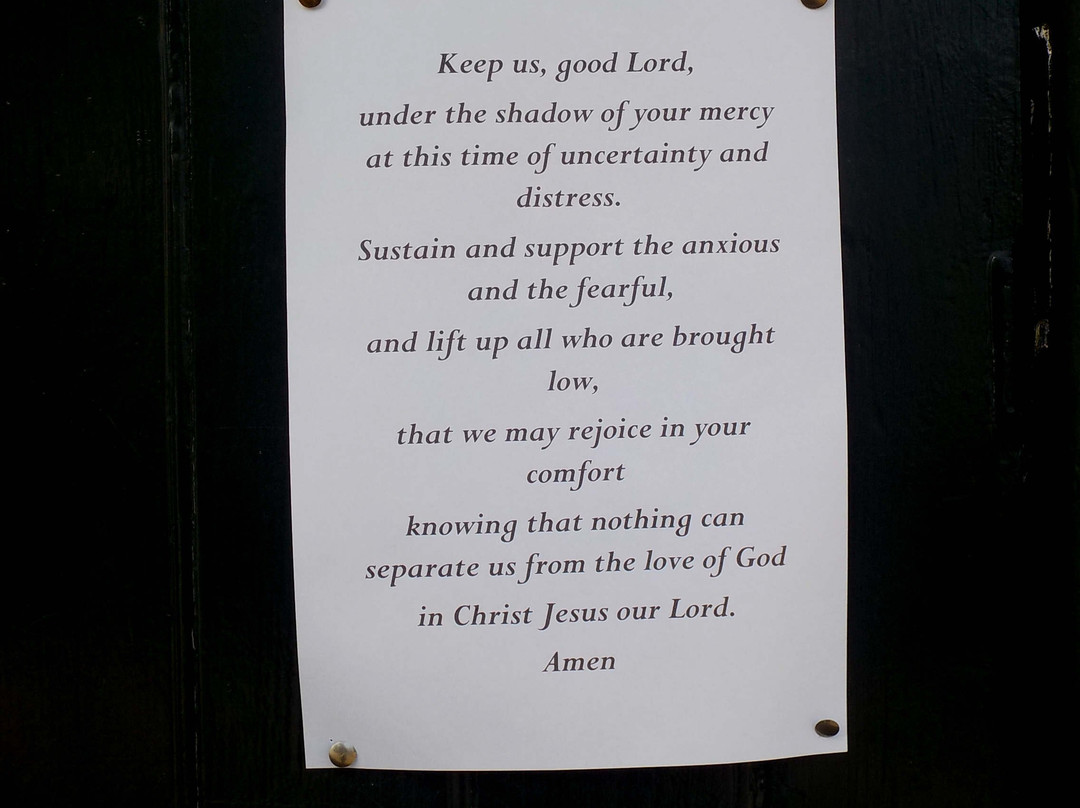 Keep us, good Lord,
under the shadow of your mercy
at this time of uncertainty and
distress.
Sustain and support the anxious
and the fearful,
and lift up all who are brought
low,
that we may rejoice in your
comfort
knowing that nothing can
separate us from the love of God
in Christ Jesus our Lord.
Amen